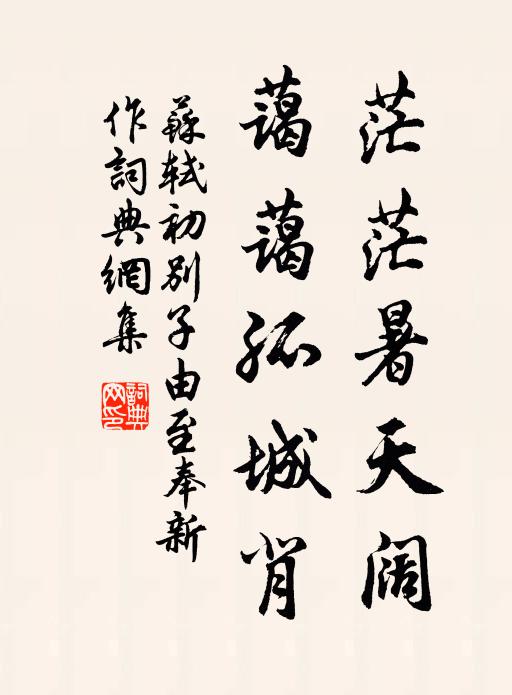 茫茫暑天阔
藹藹孤城背
蘇軾初别子由至奉新
作詞典網集
詞典網印